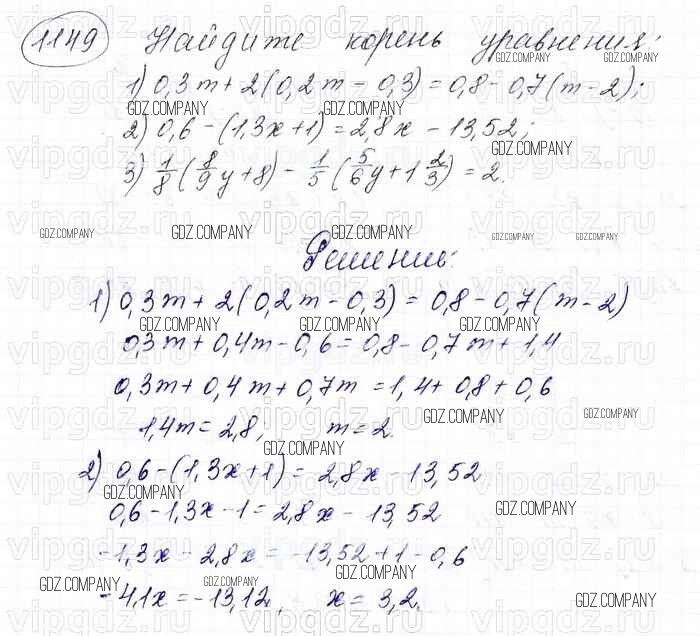 1149 Найдите корень уравнения:
1) 0,3m + 2(0,2m - 0,3) = 0,8 - 0,7(m - 2);
2) 0,6 - (1,3x + 1) = 2,8x - 13,52;
3) 1/8 (8/9 y + 8) - 1/5 (5/6 y + 1 2/3) = 2.
Решение:
1) 0,3m + 2(0,2m - 0,3) = 0,8 - 0,7(m - 2)
0,3m + 0,4m - 0,6 = 0,8 - 0,7m + 1,4
0,3m + 0,4m + 0,7m = 1,4 + 0,8 + 0,6
1,4m = 2,8, m = 2.
2) 0,6 - (1,3x + 1) = 2,8x - 13,52
0,6 - 1,3x - 1 = 2,8x - 13,52
-1,3x - 2,8x = -13,52 + 1 - 0,6
-4,1x = -13,12, x = 3,2.